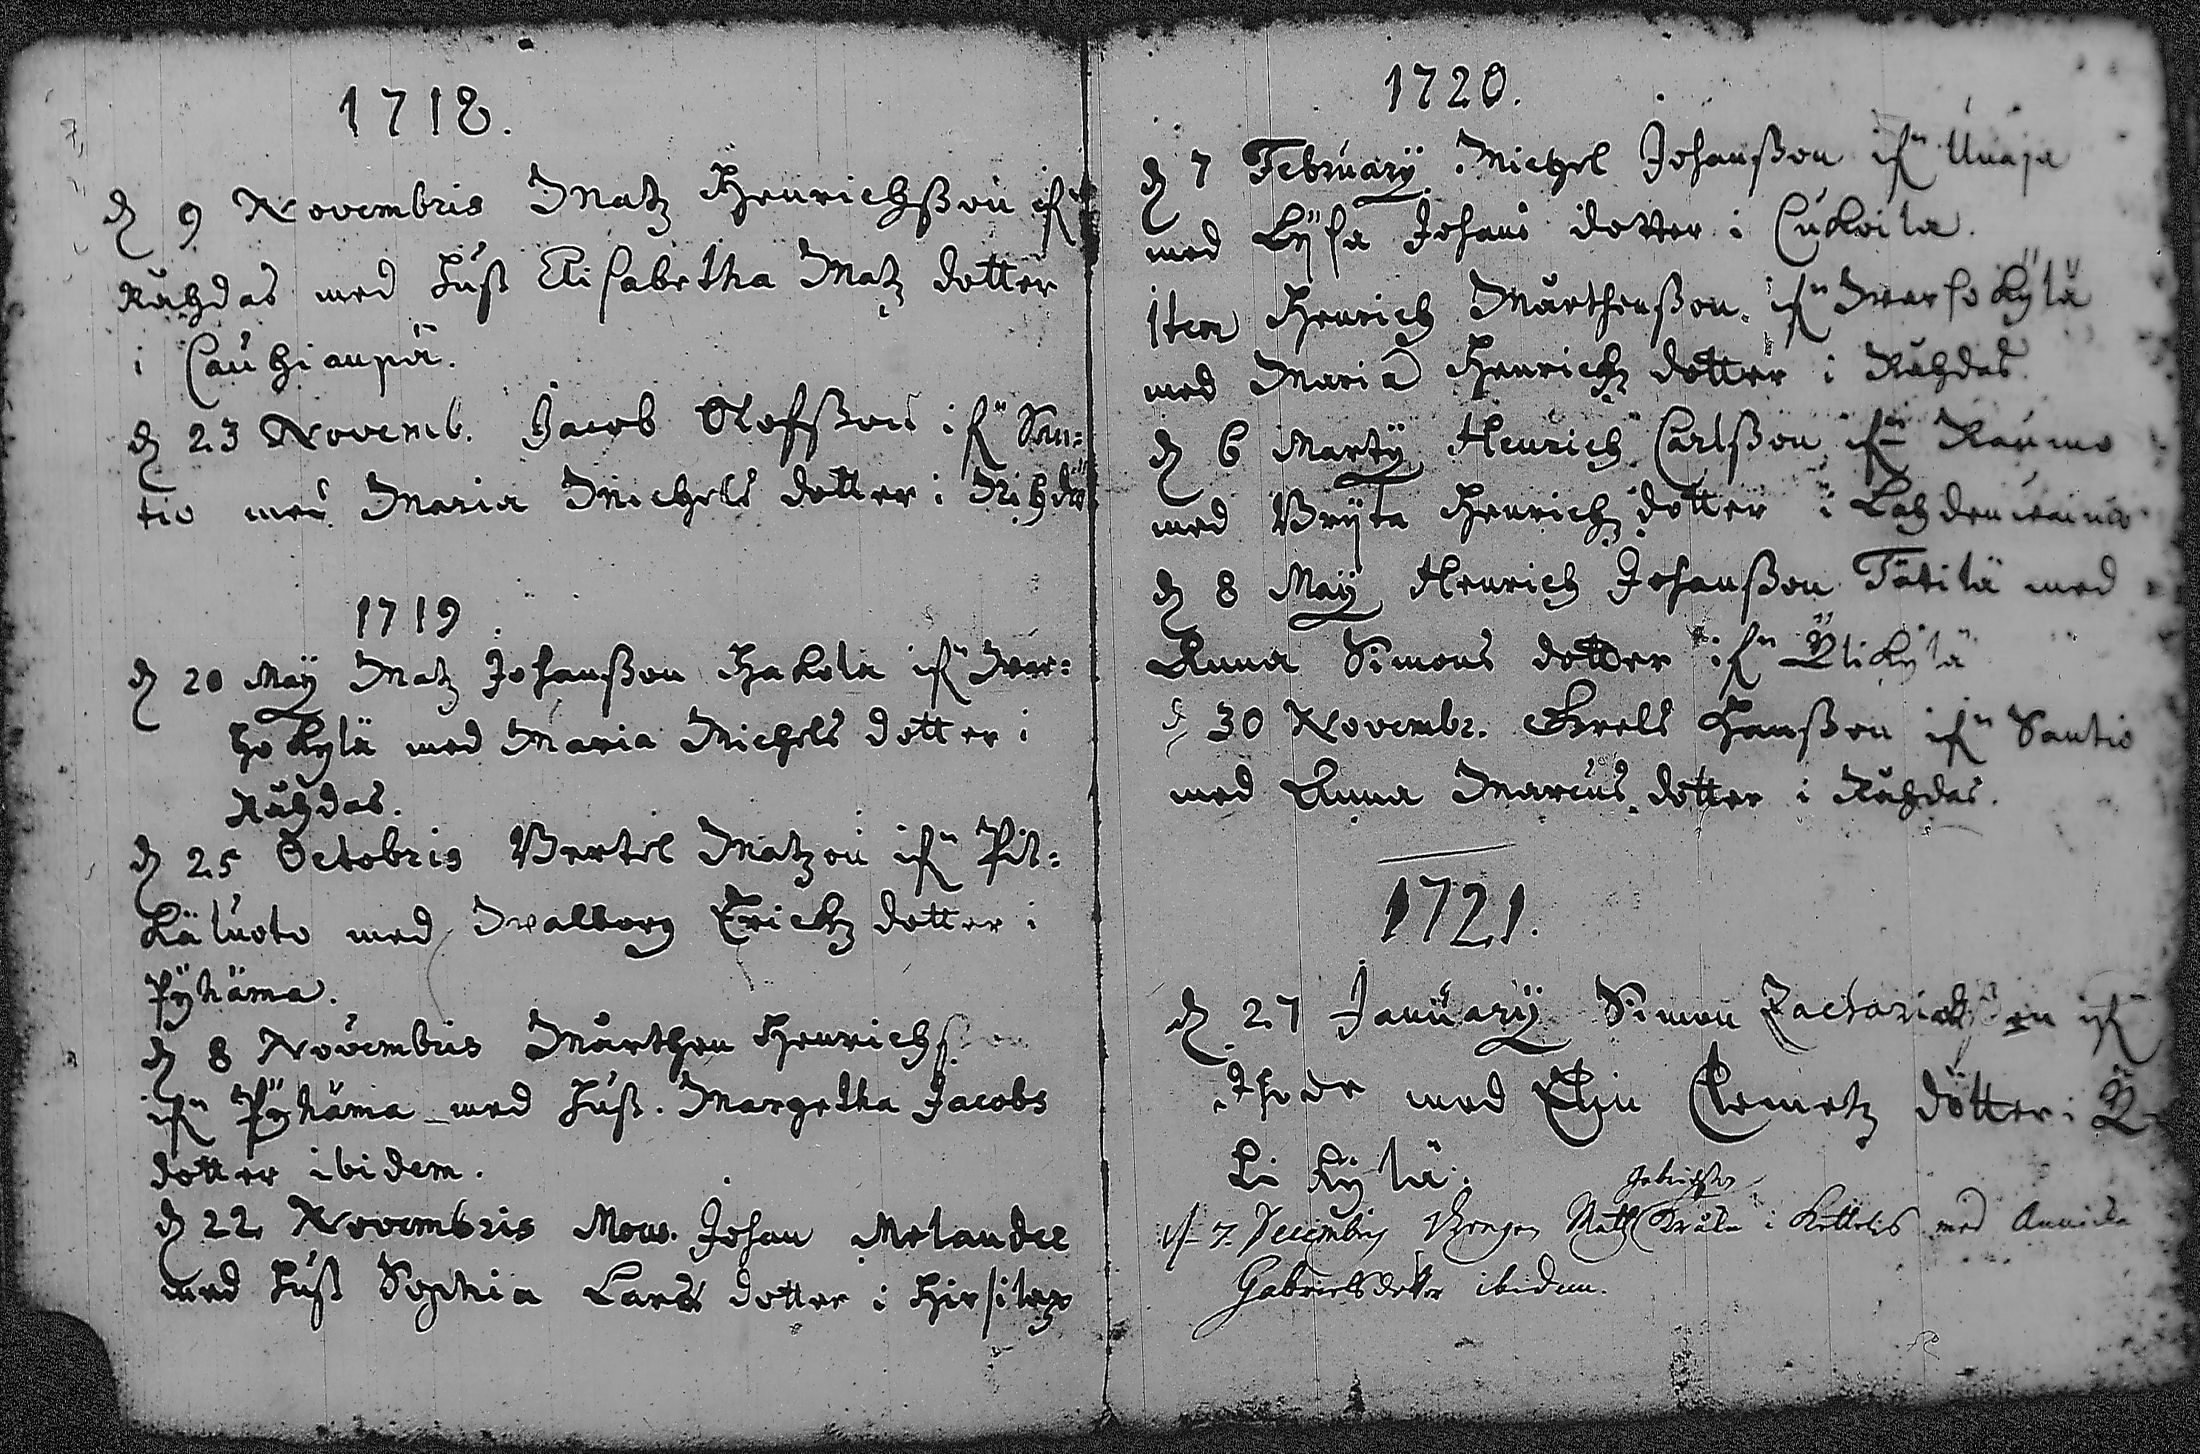 1718.
d 9 Novembris Matz Henrichßon ifn
Råhdas med Hust Elisabetha Matz dotter
i Cauhianpä.
d 23 Novemb. Jacob Olofßon ifn San:
tio med Maria Michels dotter i Rihdå
1719.
d 20 Maÿ Matz Johanßon Hakola ifn War:
hokylä med Maria Michels dotter i
Råhdas.
d 25 Octobris Bertil Matzon ifn Pit:
käluoto med Walborg Erichz dotter i
Pÿhäma.
d 8 Novembris Mårthen Henrichßon
ifn Pÿhäma med Hust. Margetha Jacobs
dotter ibidem.
d 22 Novembris Mons. Johan Melander
med Hust Sophia Lars dotter i Hirsilax
1720.
d 7 Februarÿ Michel Johanßon ifn Unaja
med Lÿsa Johans dotter i Cukoila.
Item Henrich Mårthenßon ifn Warhokÿlä
med Maria Henrichz dotter i Råhdas.
d 6 Martÿ Henrich Carlßon ifn Raumo
med Brÿta Henrichz dotter i Lahdenwainio
d 8 Maÿ Henrich Johanßon Tätilä med
Anna Simons dotter ifn Ÿlikylä
d 30 Novembr. Grels Hanßon ifn Santio
med Anna Marcus dotter i Råhdas.
1721.
d 27 Januarÿ Simon Zachariasßon ifn
med Elin Clemetz dotter i Ÿ
likÿlä.
d 7. Decembris Drengen Math Gabrielsson i Kettelis med Annika
Gabrielsdotter ibidem.